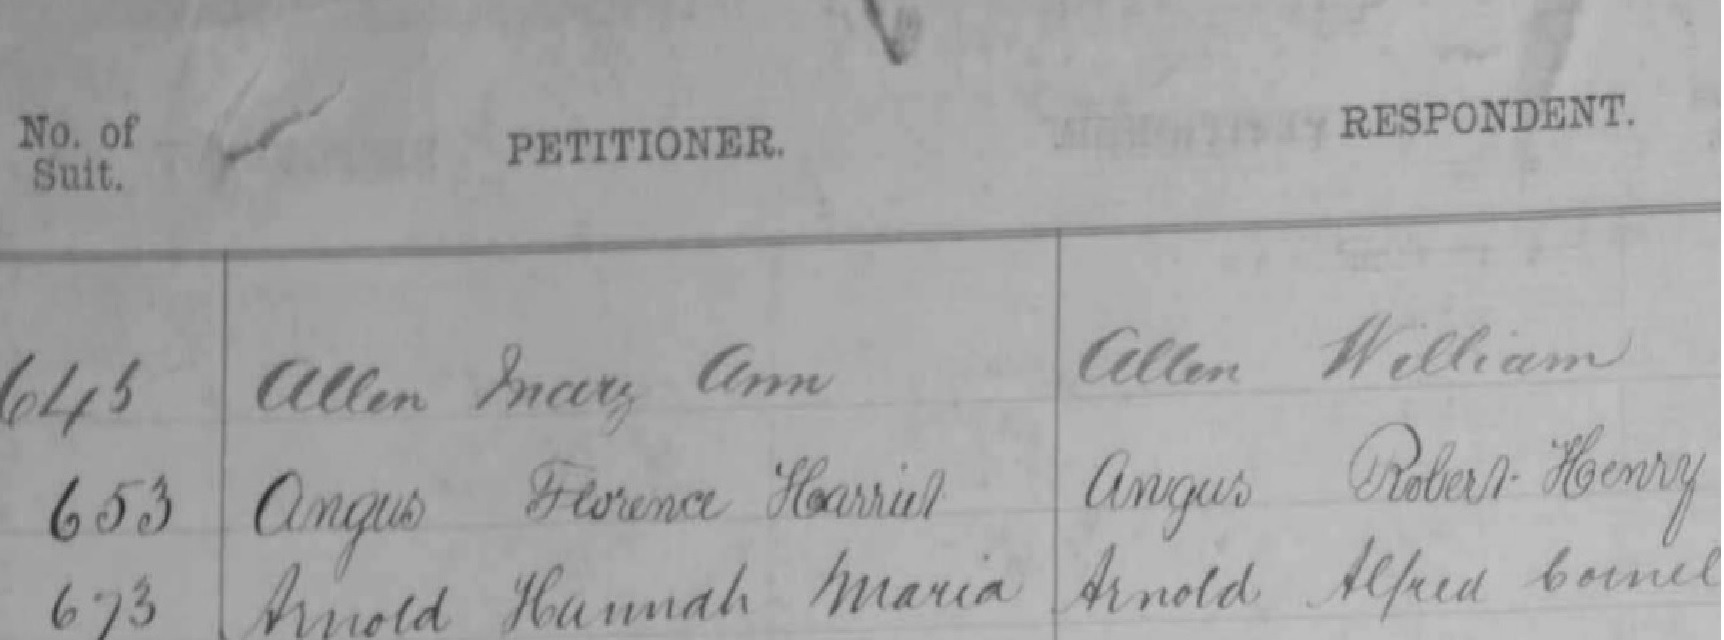 No. of Suit. PETITIONER. RESPONDENT.
645 Allen Mary Ann Allen William
653 Angus Florence Harriet Angus Robert Henry
673 Arnold Hannah Maria Arnold Alfred